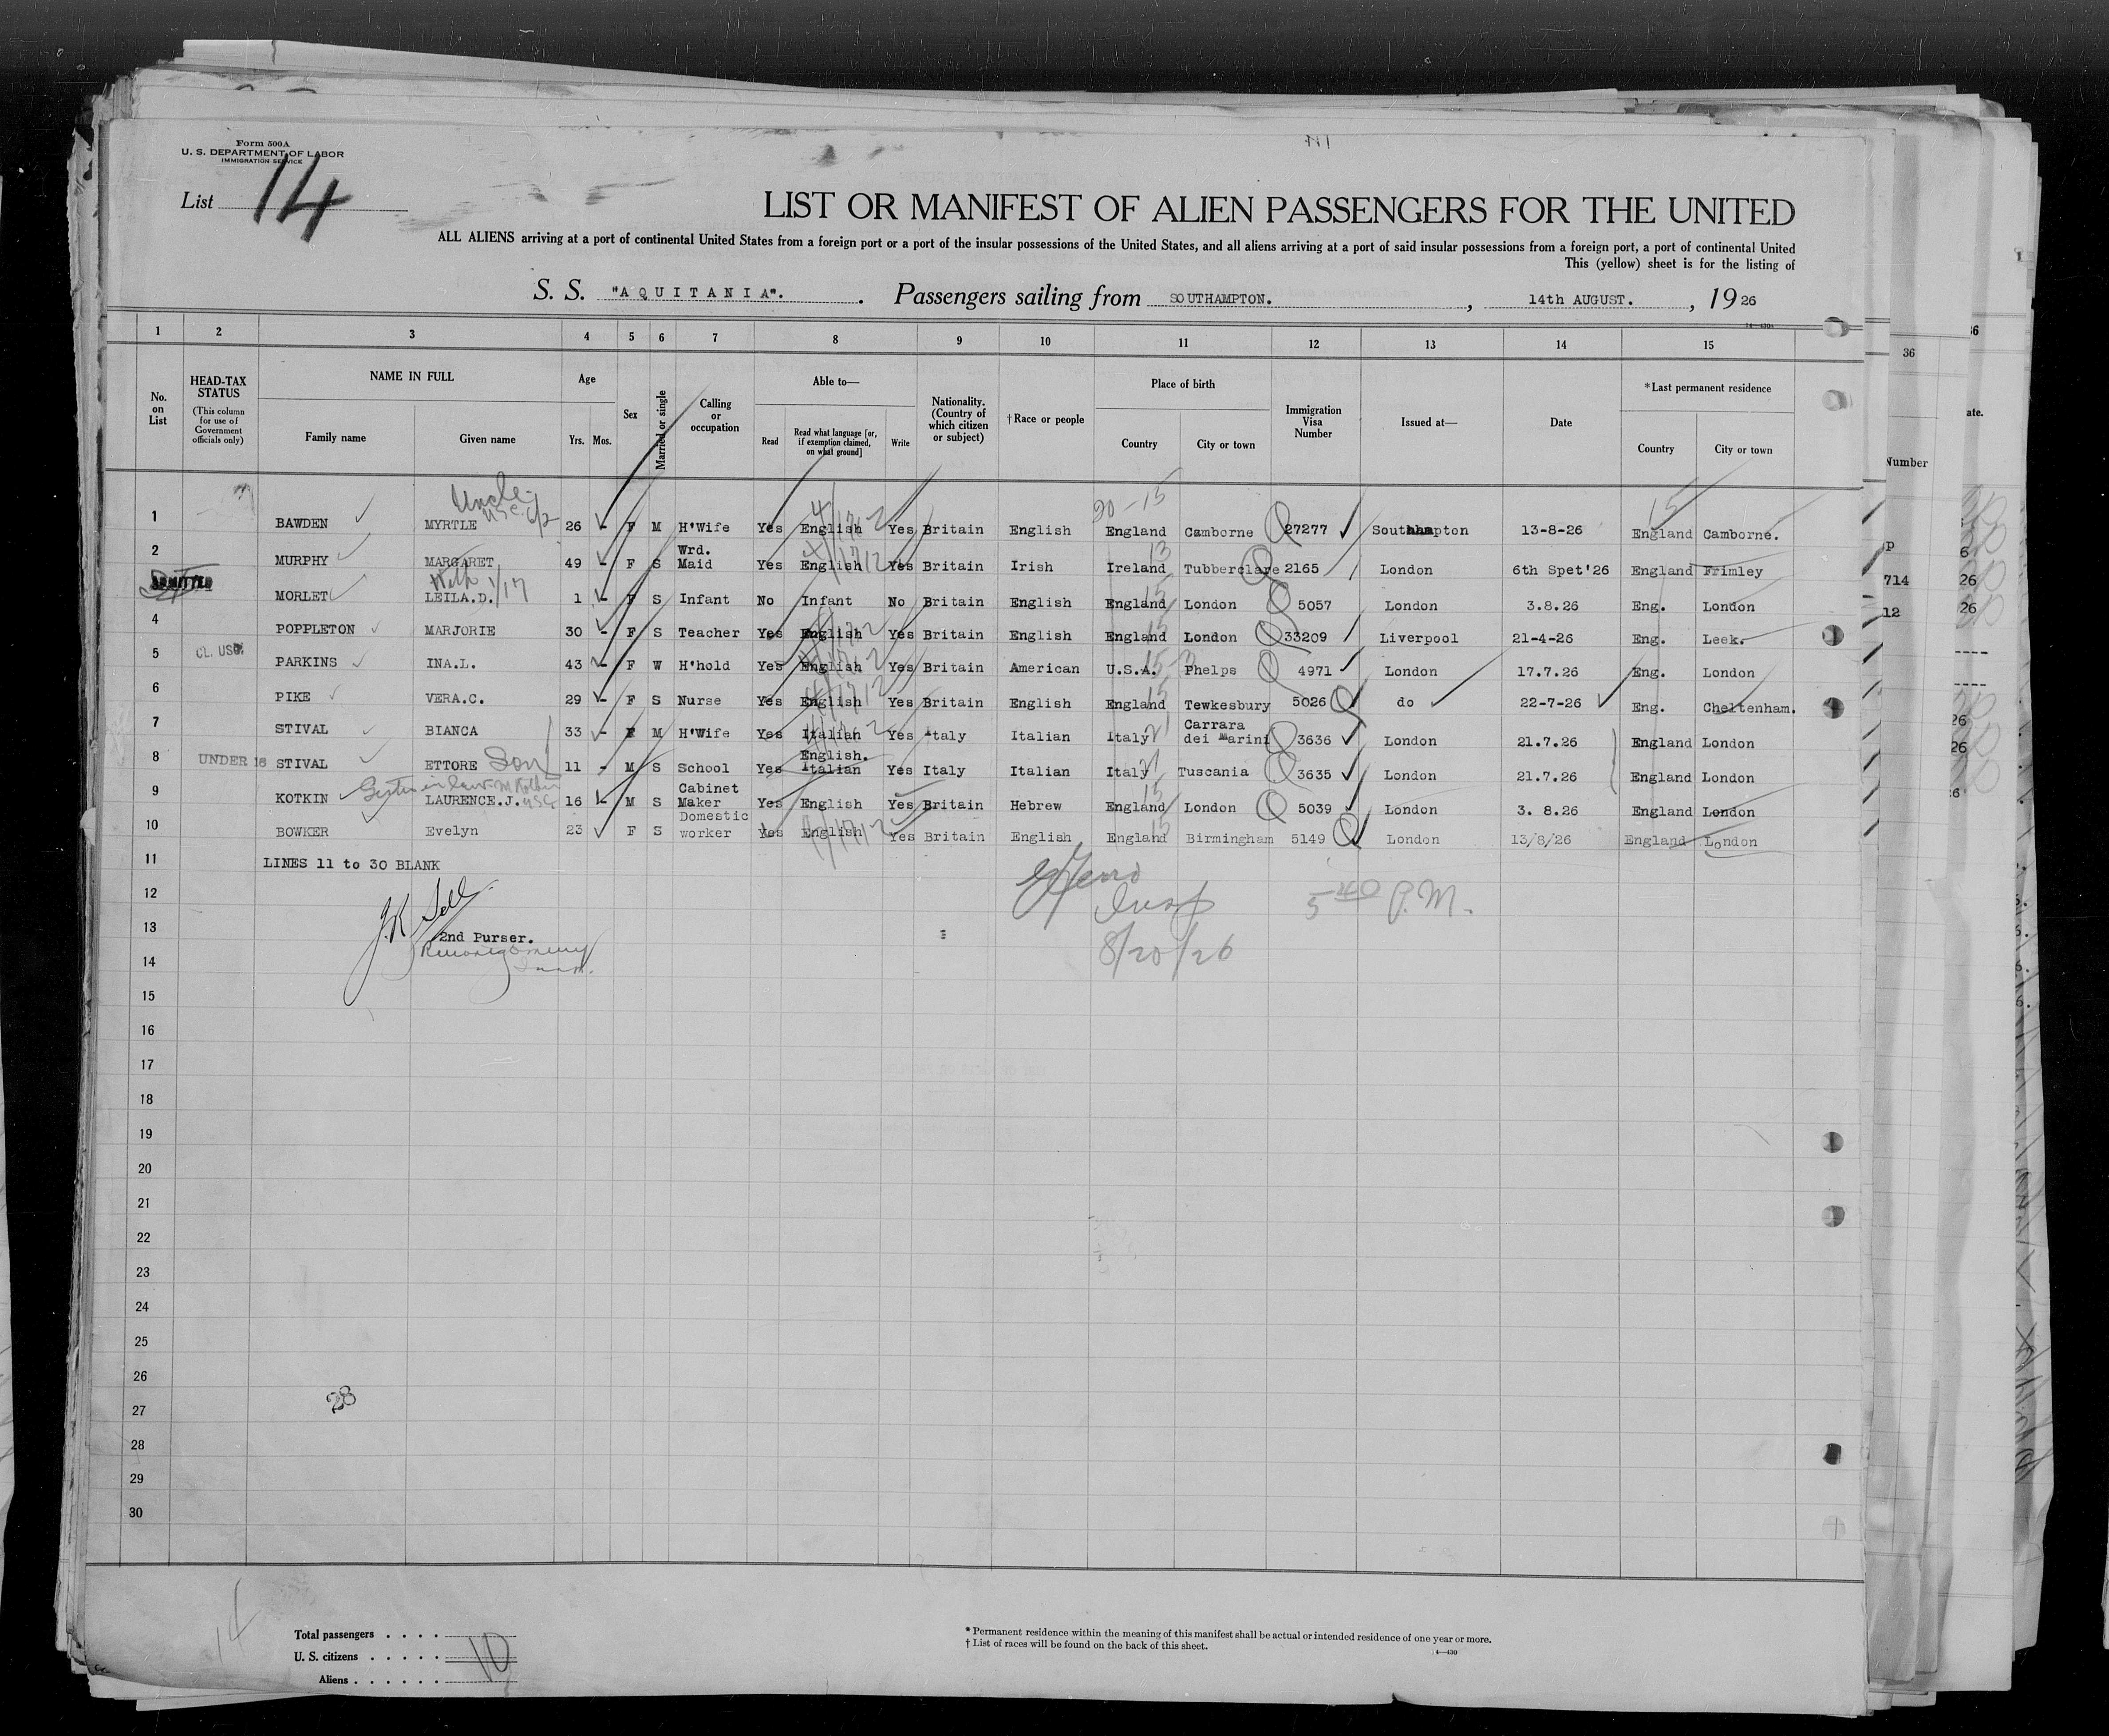 Form 500A
U. S. DEPARTMENT OF LABOR
IMMIGRATION SERVICE
List 14
LIST OR MANIFEST OF ALIEN PASSENGERS FOR THE UNITED
ALL ALIENS arriving at a port of continental United States from a foreign port or a port of the insular possessions of the United States, and all aliens arriving at a port of said insular possessions from a foreign port, a port of continental United
This (yellow) sheet is for the listing of
S. S. "AQUITANIA". Passengers sailing from SOUTHAMPTON. , 14th AUGUST. , 1926
1 2 3 4 5 6 7 8 9 10 11 12 13 14 15
No. on List
HEAD-TAX STATUS
(This column for use of Government officials only)
NAME IN FULL
Family name Given name
Age
Yrs. Mos.
Sex
Married or single
Calling or occupation
Able to—
Read
Read what language [or, if exemption claimed, on what ground]
Write
Nationality. (Country of which citizen or subject)
†Race or people
Place of birth
Country City or town
Immigration Visa Number
Issued at—
Date
*Last permanent residence
Country City or town
Uncle
20-15 15
1 BAWDEN MYRTLE 26 - F M H'Wife Yes English Yes Britain English England Camborne 27277 Southampton 13-8-26 England Camborne.
2 MURPHY MARGARET 49 - F S Wrd. Maid Yes English Yes Britain Irish Ireland Tubberclare 2165 London 6th Spet'26 England Frimley
With 1/17
ADMITTED MORLET LEILA.D. 1 - F S Infant No Infant No Britain English England London 5057 London 3.8.26 Eng. London
4 POPPLETON MARJORIE 30 - F S Teacher Yes English Yes Britain English England London 33209 Liverpool 21-4-26 Eng. Leek.
5 CL. USC. PARKINS INA.L. 43 - F W H'hold Yes English Yes Britain American U.S.A. Phelps 4971 London 17.7.26 Eng. London
6 PIKE VERA.C. 29 - F S Nurse Yes English Yes Britain English England Tewkesbury 5026 do 22-7-26 Eng. Cheltenham.
7 STIVAL BIANCA 33 - F M H'Wife Yes Italian Yes Italy Italian Italy Carrara dei Marini 3636 London 21.7.26 England London
8 UNDER 16 STIVAL ETTORE Son 11 - M S School Yes English. Italian Yes Italy Italian Italy Tuscania 3635 London 21.7.26 England London
Sister in law
9 KOTKIN LAURENCE.J. 16 - M S Cabinet Maker Yes English Yes Britain Hebrew England London 5039 London 3. 8.26 England London
10 BOWKER Evelyn 23 F S Domestic worker Yes English Yes Britain English England Birmingham 5149 London 13/8/26 England London
11 LINES 11 to 30 BLANK
12
5 40 P.M.
13 2nd Purser.
8/20/26
14
15
16
17
18
19
20
21
22
23
24
25
26
28
27
28
29
30
14
Total passengers . . . .
U. S. citizens . . . . . 10
Aliens . . . . . .
* Permanent residence within the meaning of this manifest shall be actual or intended residence of one year or more.
† List of races will be found on the back of this sheet.
14—430
36
Number
714
12
26
26